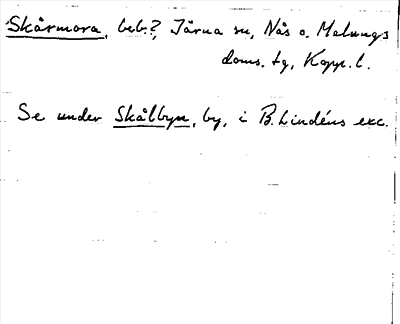 Skårmora, beb.?, Järna sn, Nås o. Malungs
doms. tg, Kopp. l.
Se under Skålbyn, by, i B. Lindéns exc.